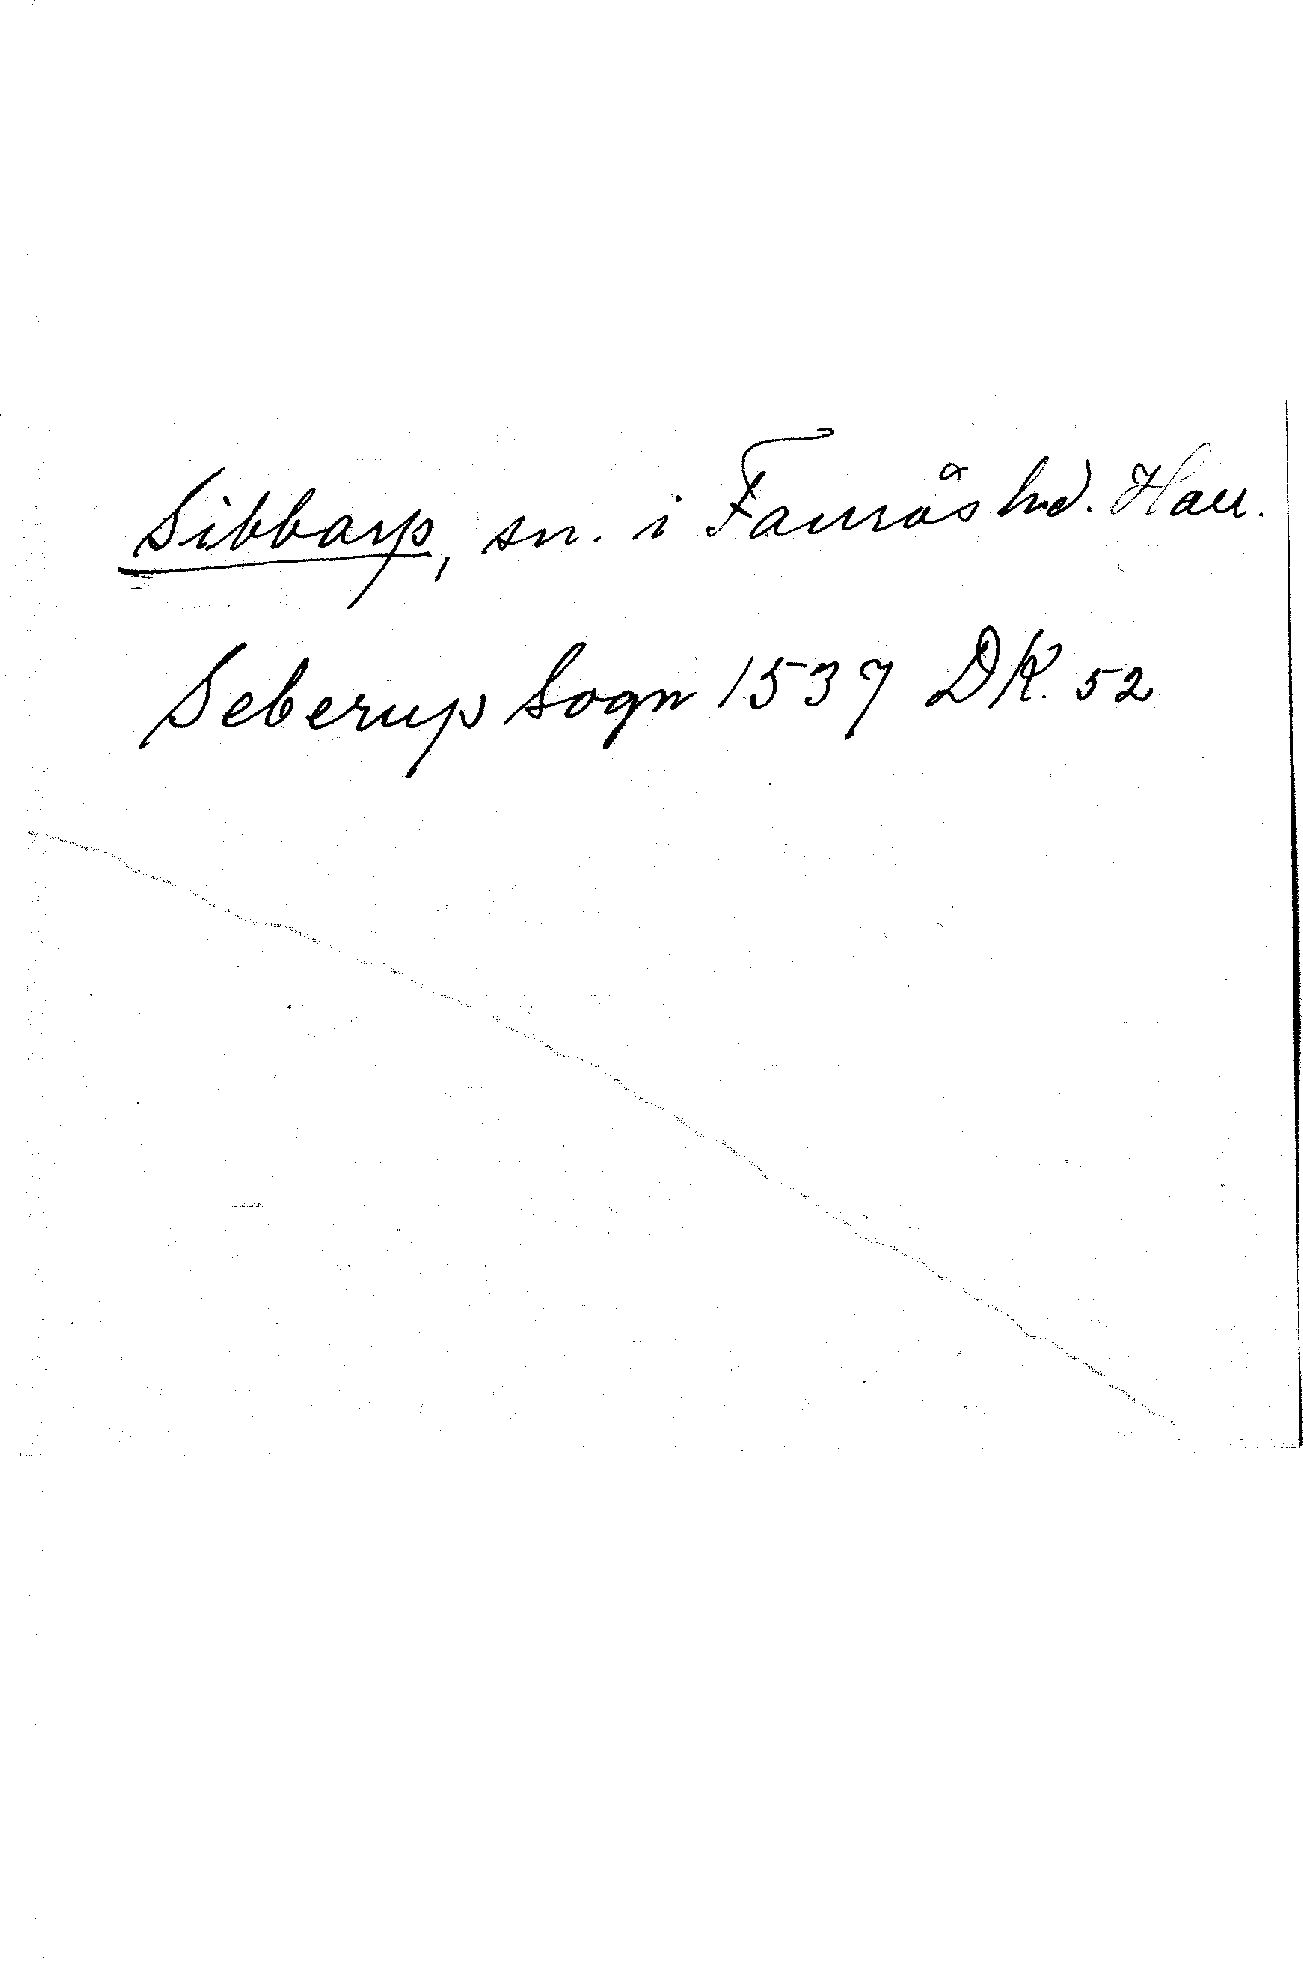 Sibbarp, sn. i Faurås hd. Hall.
Seberup Sogn 1537 DK. 52